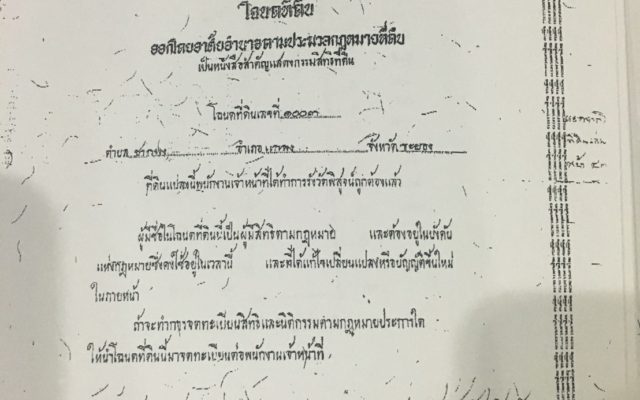 โฉนดที่ดิน
ออกโดยอาศัยอำนาจตามประมวลกฎหมายที่ดิน
เป็นหนังสือสำคัญแสดงกรรมสิทธิ์ที่ดิน
โฉนดที่ดินเลขที่
ตำบล อำเภอ แกลง จังหวัด ระยอง
ที่ดินแปลงนี้พนักงานเจ้าหน้าที่ได้ทำการรังวัดพิสูจน์ถูกต้องแล้ว
ผู้มีชื่อในโฉนดที่ดินนี้เป็นผู้มีสิทธิตามกฎหมาย และต้องอยู่ในบังคับ
แห่งกฎหมายซึ่งคงใช้อยู่ในเวลานี้ และที่ได้แก้ไขเปลี่ยนแปลงหรือบัญญัติขึ้นใหม่
ในภายหน้า
ถ้าจะทำการจดทะเบียนสิทธิและนิติกรรมตามกฎหมายประการใด
ให้นำโฉนดที่ดินนี้มาจดทะเบียนต่อพนักงานเจ้าหน้าที่